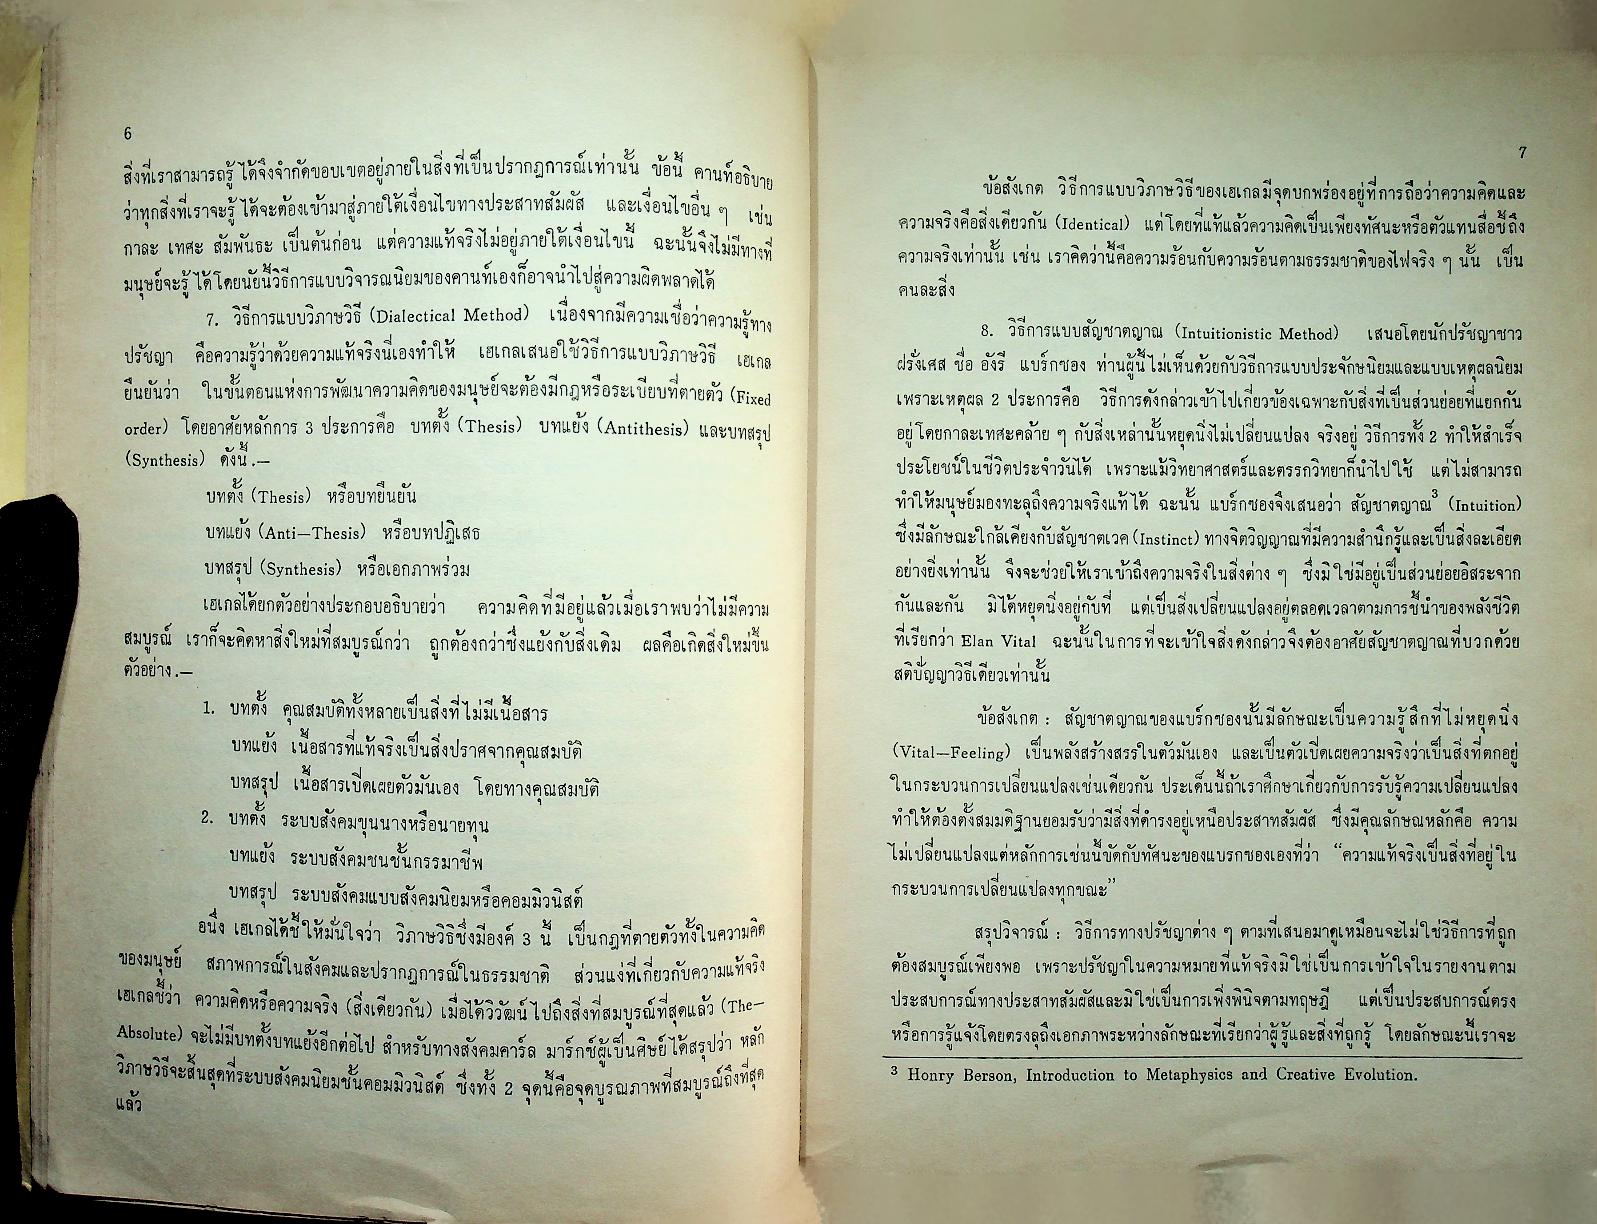 6
สิ่งที่เราสามารถรู้ได้จึงจำกัดขอบเขตอยู่ภายในสิ่งที่เป็นปรากฏการณ์เท่านั้น ข้อนี้ คานท์อธิบาย
ว่าทุกสิ่งที่เราจะรู้ได้จะต้องเข้ามาสู่ภายใต้เงื่อนไขทางประสาทสัมผัส และเงื่อนไขอื่น ๆ เช่น
กาละ เทศะ สัมพันธะ เป็นต้นก่อน แต่ความแท้จริงไม่อยู่ภายใต้เงื่อนไขนี้ ฉะนั้นจึงไม่มีทางที่
มนุษย์จะรู้ได้โดยนัยนี้วิธีการแบบวิจารณนิยมของคานท์เองก็อาจนำไปสู่ความผิดพลาดได้
7. วิธีการแบบวิภาษวิธี (Dialectical Method) เนื่องจากมีความเชื่อว่าความรู้ทาง
ปรัชญา คือความรู้ว่าด้วยความแท้จริงนี่เองทำให้ เฮเกลเสนอใช้วิธีการแบบวิภาษวิธี เฮเกล
ยืนยันว่า ในขั้นตอนแห่งการพัฒนาความคิดของมนุษย์จะต้องมีกฎหรือระเบียบที่ตายตัว (Fixed
order) โดยอาศัยหลักการ 3 ประการคือ บทตั้ง (Thesis) บทแย้ง (Antithesis) และบทสรุป
(Synthesis) ดังนี้.—
บทตั้ง (Thesis) หรือบทยืนยัน
บทแย้ง (Anti—Thesis) หรือบทปฏิเสธ
บทสรุป (Synthesis) หรือเอกภาพร่วม
เฮเกลได้ยกตัวอย่างประกอบอธิบายว่า ความคิดที่มีอยู่แล้วเมื่อเราพบว่าไม่มีความ
สมบูรณ์ เราก็จะคิดหาสิ่งใหม่ที่สมบูรณ์กว่า ถูกต้องกว่าซึ่งแย้งกับสิ่งเดิม ผลคือเกิดสิ่งใหม่ขึ้น
ตัวอย่าง.—
1. บทตั้ง คุณสมบัติทั้งหลายเป็นสิ่งที่ไม่มีเนื้อสาร
บทแย้ง เนื้อสารที่แท้จริงเป็นสิ่งปราศจากคุณสมบัติ
บทสรุป เนื้อสารเปิดเผยตัวมันเอง โดยทางคุณสมบัติ
2. บทตั้ง ระบบสังคมขุนนางหรือนายทุน
บทแย้ง ระบบสังคมชนชั้นกรรมาชีพ
บทสรุป ระบบสังคมแบบสังคมนิยมหรือคอมมิวนิสต์
อนึ่ง เฮเกลได้ชี้ให้มั่นใจว่า วิภาษวิธีซึ่งมีองค์ 3 นี้ เป็นกฎที่ตายตัวทั้งในความคิด
ของมนุษย์ สภาพการณ์ในสังคมและปรากฏการณ์ในธรรมชาติ ส่วนแง่ที่เกี่ยวกับความแท้จริง
เฮเกลชี้ว่า ความคิดหรือความจริง (สิ่งเดียวกัน) เมื่อได้วิวัฒน์ไปถึงสิ่งที่สมบูรณ์ที่สุดแล้ว (The—
Absolute) จะไม่มีบทตั้งบทแย้งอีกต่อไป สำหรับทางสังคมคาร์ล มาร์กซ์ผู้เป็นศิษย์ได้สรุปว่า หลัก
วิภาษวิธีจะสิ้นสุดที่ระบบสังคมนิยมชั้นคอมมิวนิสต์ ซึ่งทั้ง 2 จุดนี้คือจุดบูรณภาพที่สมบูรณ์ถึงที่สุด
แล้ว
7
ข้อสังเกต วิธีการแบบวิภาษวิธีของเฮเกลมีจุดบกพร่องอยู่ที่การถือว่าความคิดและ
ความจริงคือสิ่งเดียวกัน (Identical) แต่โดยที่แท้แล้วความคิดเป็นเพียงทัศนะหรือตัวแทนสื่อชี้ถึง
ความจริงเท่านั้น เช่น เราคิดว่านี้คือความร้อนกับความร้อนตามธรรมชาติของไฟจริง ๆ นั้น เป็น
คนละสิ่ง
8. วิธีการแบบสัญชาตญาณ (Intuitionistic Method) เสนอโดยนักปรัชญาชาว
ฝรั่งเศส ชื่อ อังรี แบร์กซอง ท่านผู้นี้ไม่เห็นด้วยกับวิธีการแบบประจักษนิยมและแบบเหตุผลนิยม
เพราะเหตุผล 2 ประการคือ วิธีการดังกล่าวเข้าไปเกี่ยวข้องเฉพาะกับสิ่งที่เป็นส่วนย่อยที่แยกกัน
อยู่โดยกาละเทศะคล้าย ๆ กับสิ่งเหล่านั้นหยุดนิ่งไม่เปลี่ยนแปลง จริงอยู่ วิธีการทั้ง 2 ทำให้สำเร็จ
ประโยชน์ในชีวิตประจำวันได้ เพราะแม้วิทยาศาสตร์และตรรกวิทยาก็นำไปใช้ แต่ไม่สามารถ
ทำให้มนุษย์มองทะลุถึงความจริงแท้ได้ ฉะนั้น แบร์กซองจึงเสนอว่า สัญชาตญาณ³ (Intuition)
ซึ่งมีลักษณะใกล้เคียงกับสัญชาตเวค (Instinct) ทางจิตวิญญาณที่มีความสำนึกรู้และเป็นสิ่งละเอียด
อย่างยิ่งเท่านั้น จึงจะช่วยให้เราเข้าถึงความจริงในสิ่งต่าง ๆ ซึ่งมิใช่มีอยู่เป็นส่วนย่อยอิสระจาก
กันและกัน มิได้หยุดนิ่งอยู่กับที่ แต่เป็นสิ่งเปลี่ยนแปลงอยู่ตลอดเวลาตามการชี้นำของพลังชีวิต
ที่เรียกว่า Elan Vital ฉะนั้นในการที่จะเข้าใจสิ่งดังกล่าวจึงต้องอาศัยสัญชาตญาณที่บวกด้วย
สติปัญญาวิธีเดียวเท่านั้น
ข้อสังเกต : สัญชาตญาณของแบร์กซองนั้นมีลักษณะเป็นความรู้สึกที่ไม่หยุดนิ่ง
(Vital—Feeling) เป็นพลังสร้างสรรในตัวมันเอง และเป็นตัวเปิดเผยความจริงว่าเป็นสิ่งที่ตกอยู่
ในกระบวนการเปลี่ยนแปลงเช่นเดียวกัน ประเด็นนี้ถ้าเราศึกษาเกี่ยวกับการรับรู้ความเปลี่ยนแปลง
ทำให้ต้องตั้งสมมติฐานยอมรับว่ามีสิ่งที่ดำรงอยู่เหนือประสาทสัมผัส ซึ่งมีคุณลักษณหลักคือ ความ
ไม่เปลี่ยนแปลงแต่หลักการเช่นนี้ขัดกับทัศนะของแบรกซองเองที่ว่า “ความแท้จริงเป็นสิ่งที่อยู่ใน
กระบวนการเปลี่ยนแปลงทุกขณะ”
สรุปวิจารณ์ : วิธีการทางปรัชญาต่าง ๆ ตามที่เสนอมาดูเหมือนจะไม่ใช่วิธีการที่ถูก
ต้องสมบูรณ์เพียงพอ เพราะปรัชญาในความหมายที่แท้จริงมิใช่เป็นการเข้าใจในรายงานตาม
ประสบการณ์ทางประสาทสัมผัสและมิใช่เป็นการเพ่งพินิจตามทฤษฎี แต่เป็นประสบการณ์ตรง
หรือการรู้แจ้งโดยตรงลุถึงเอกภาพระหว่างลักษณะที่เรียกว่าผู้รู้และสิ่งที่ถูกรู้ โดยลักษณะนี้เราจะ
³ Honry Berson, Introduction to Metaphysics and Creative Evolution.